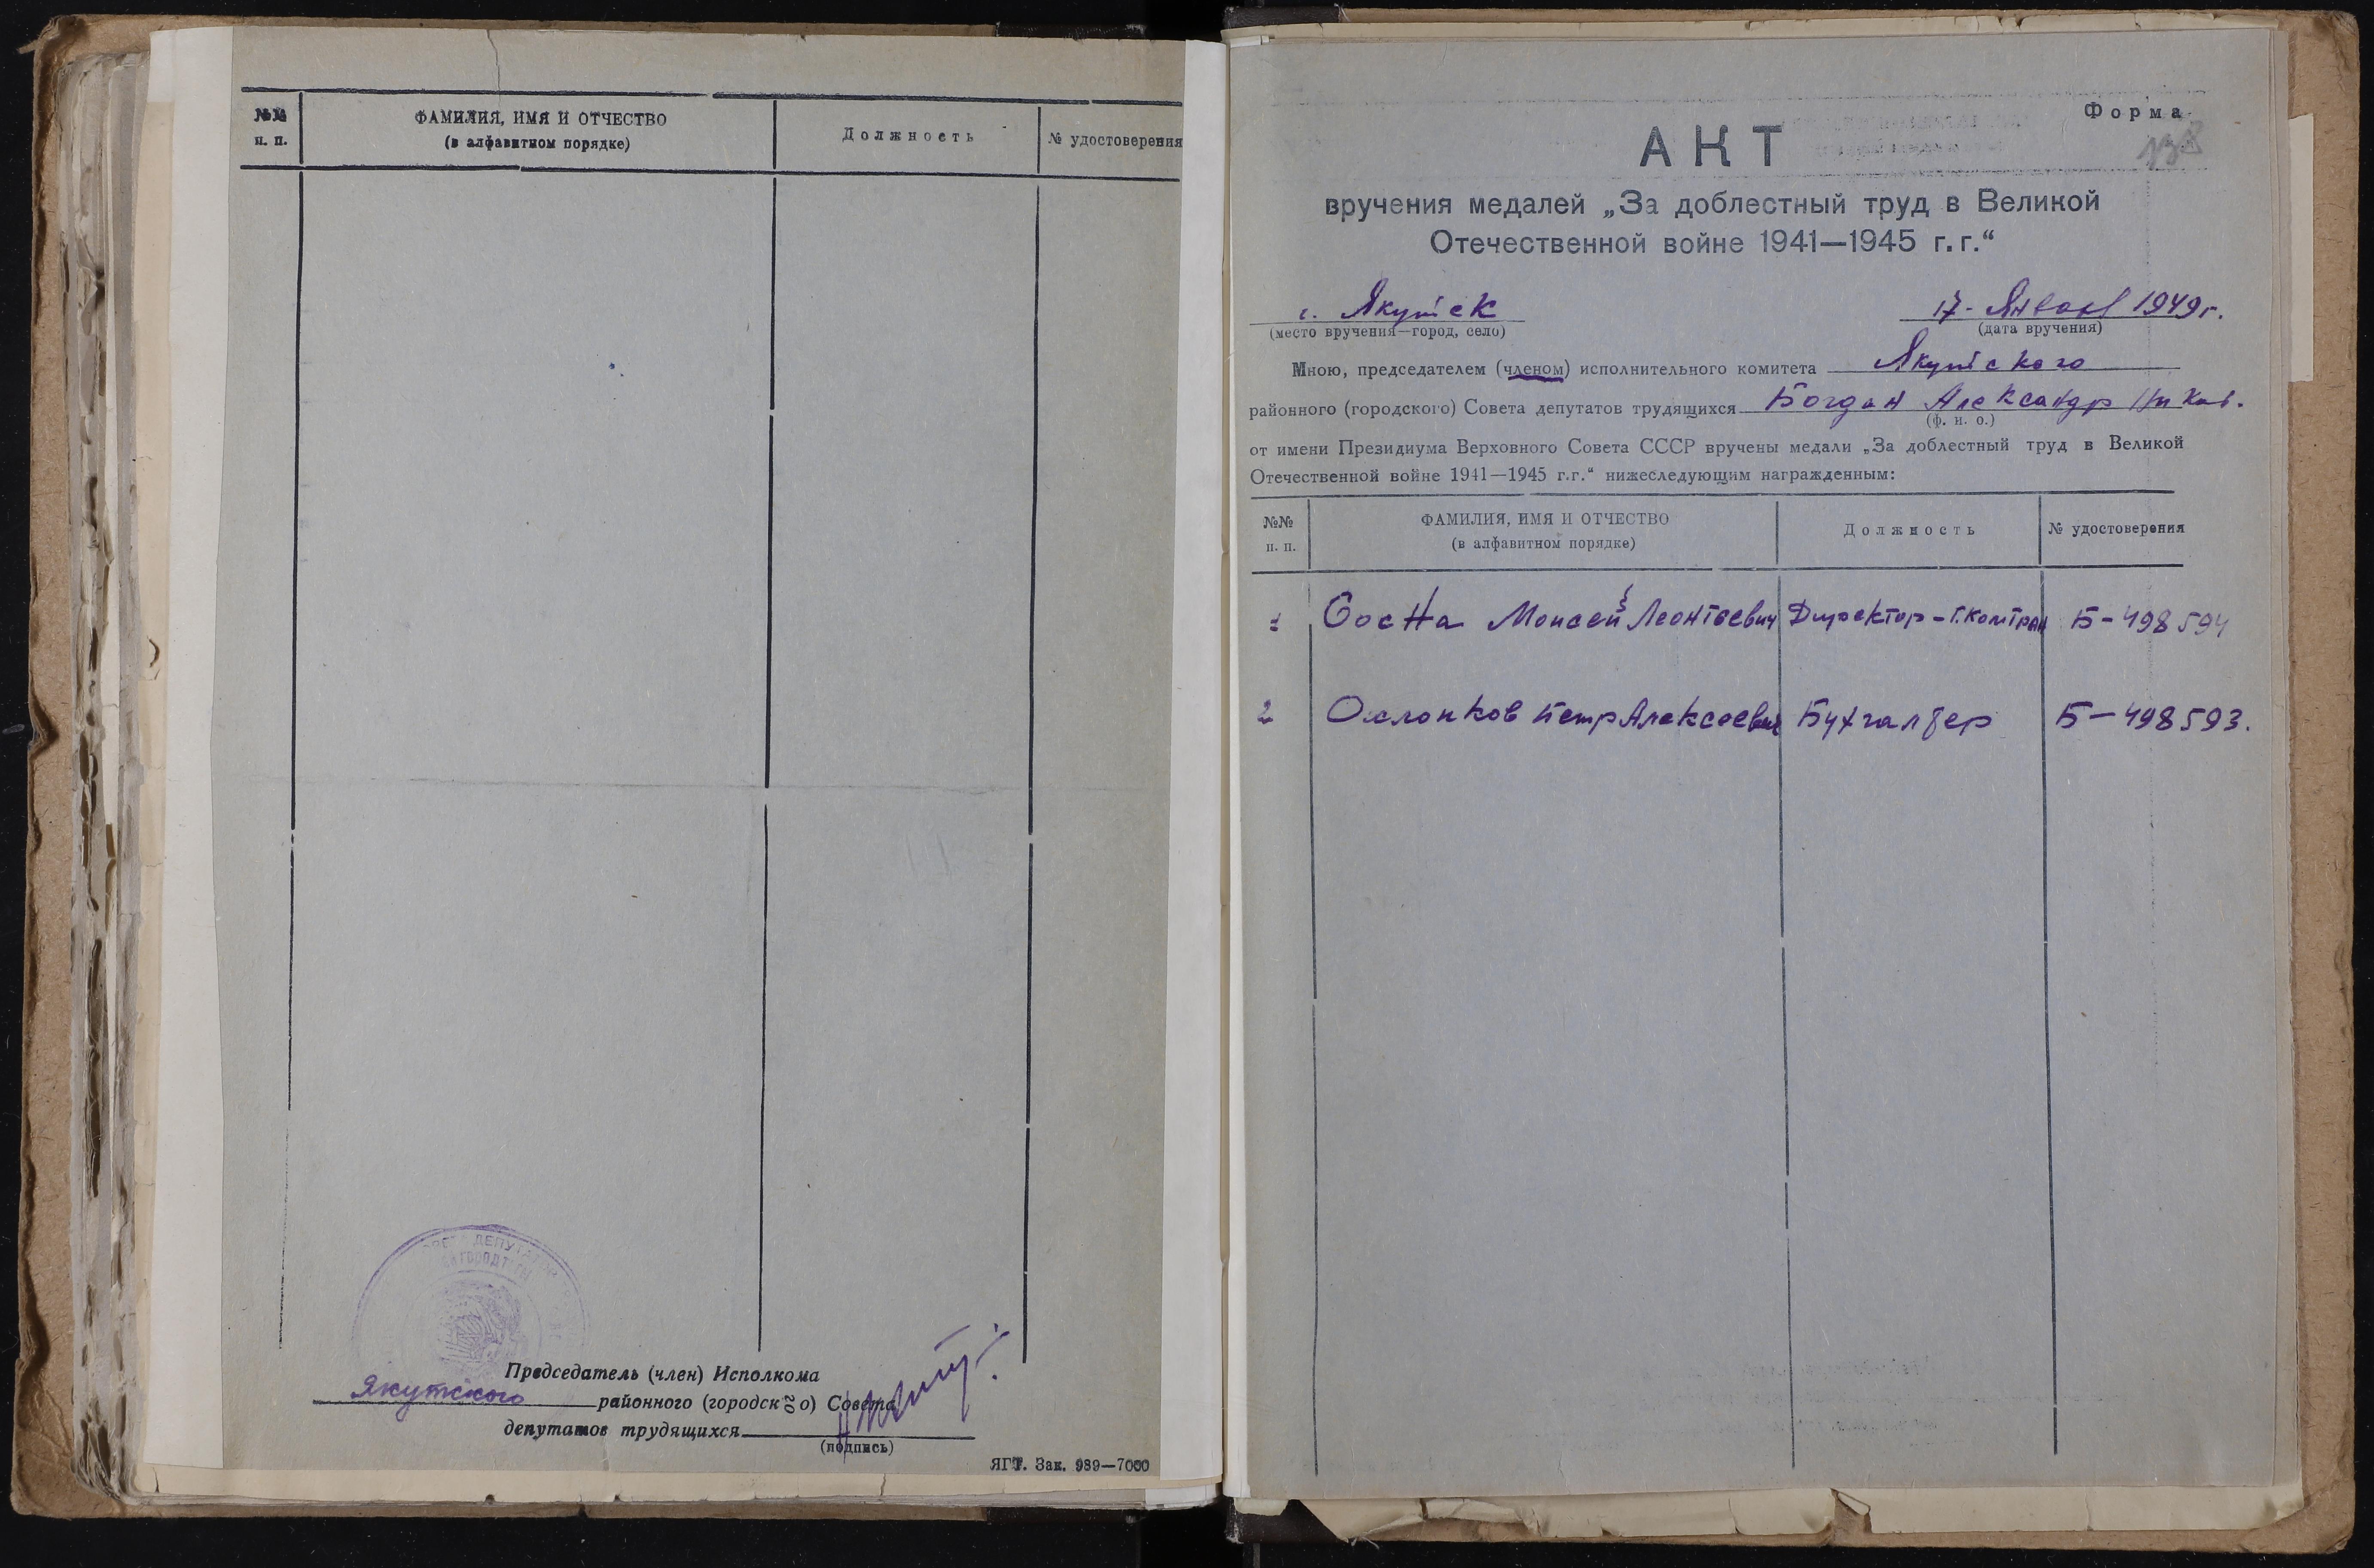 №№
п. п.
ФАМИЛИЯ, ИМЯ И ОТЧЕСТВО
(в алфавитном порядке)
Должность
№ удостоверения
ДЕПУТА
Председатель (член) Исполкома
Якутского районного (городского) Совета
депутатов трудящихся
(подпись)
ЯГТ. Зак. 989—7000
Форма
138
АКТ
вручения медалей „За доблестный труд в Великой
Отечественной войне 1941—1945 г.г.“
г. Якутск
17- Января 1949г.
(место вручения—город, село)
(дата вручения)
Мною, председателем (членом) исполнительного комитета Якутского
районного (городского) Совета депутатов трудящихся Богдан Александр Ник
(ф. и. о.)
от имени Президиума Верховного Совета СССР вручены медали „За доблестный труд в Великой
Отечественной войне 1941—1945 г.г.“ нижеследующим награжденным:
№№
п. п.
ФАМИЛИЯ, ИМЯ И ОТЧЕСТВО
(в алфавитном порядке)
Должность
№ удостоверения
1 Сосна Моисей Леонтьевич Директор Б-498594
2 Охлопков Петр Алексеевич Бухгалтер Б-498593.